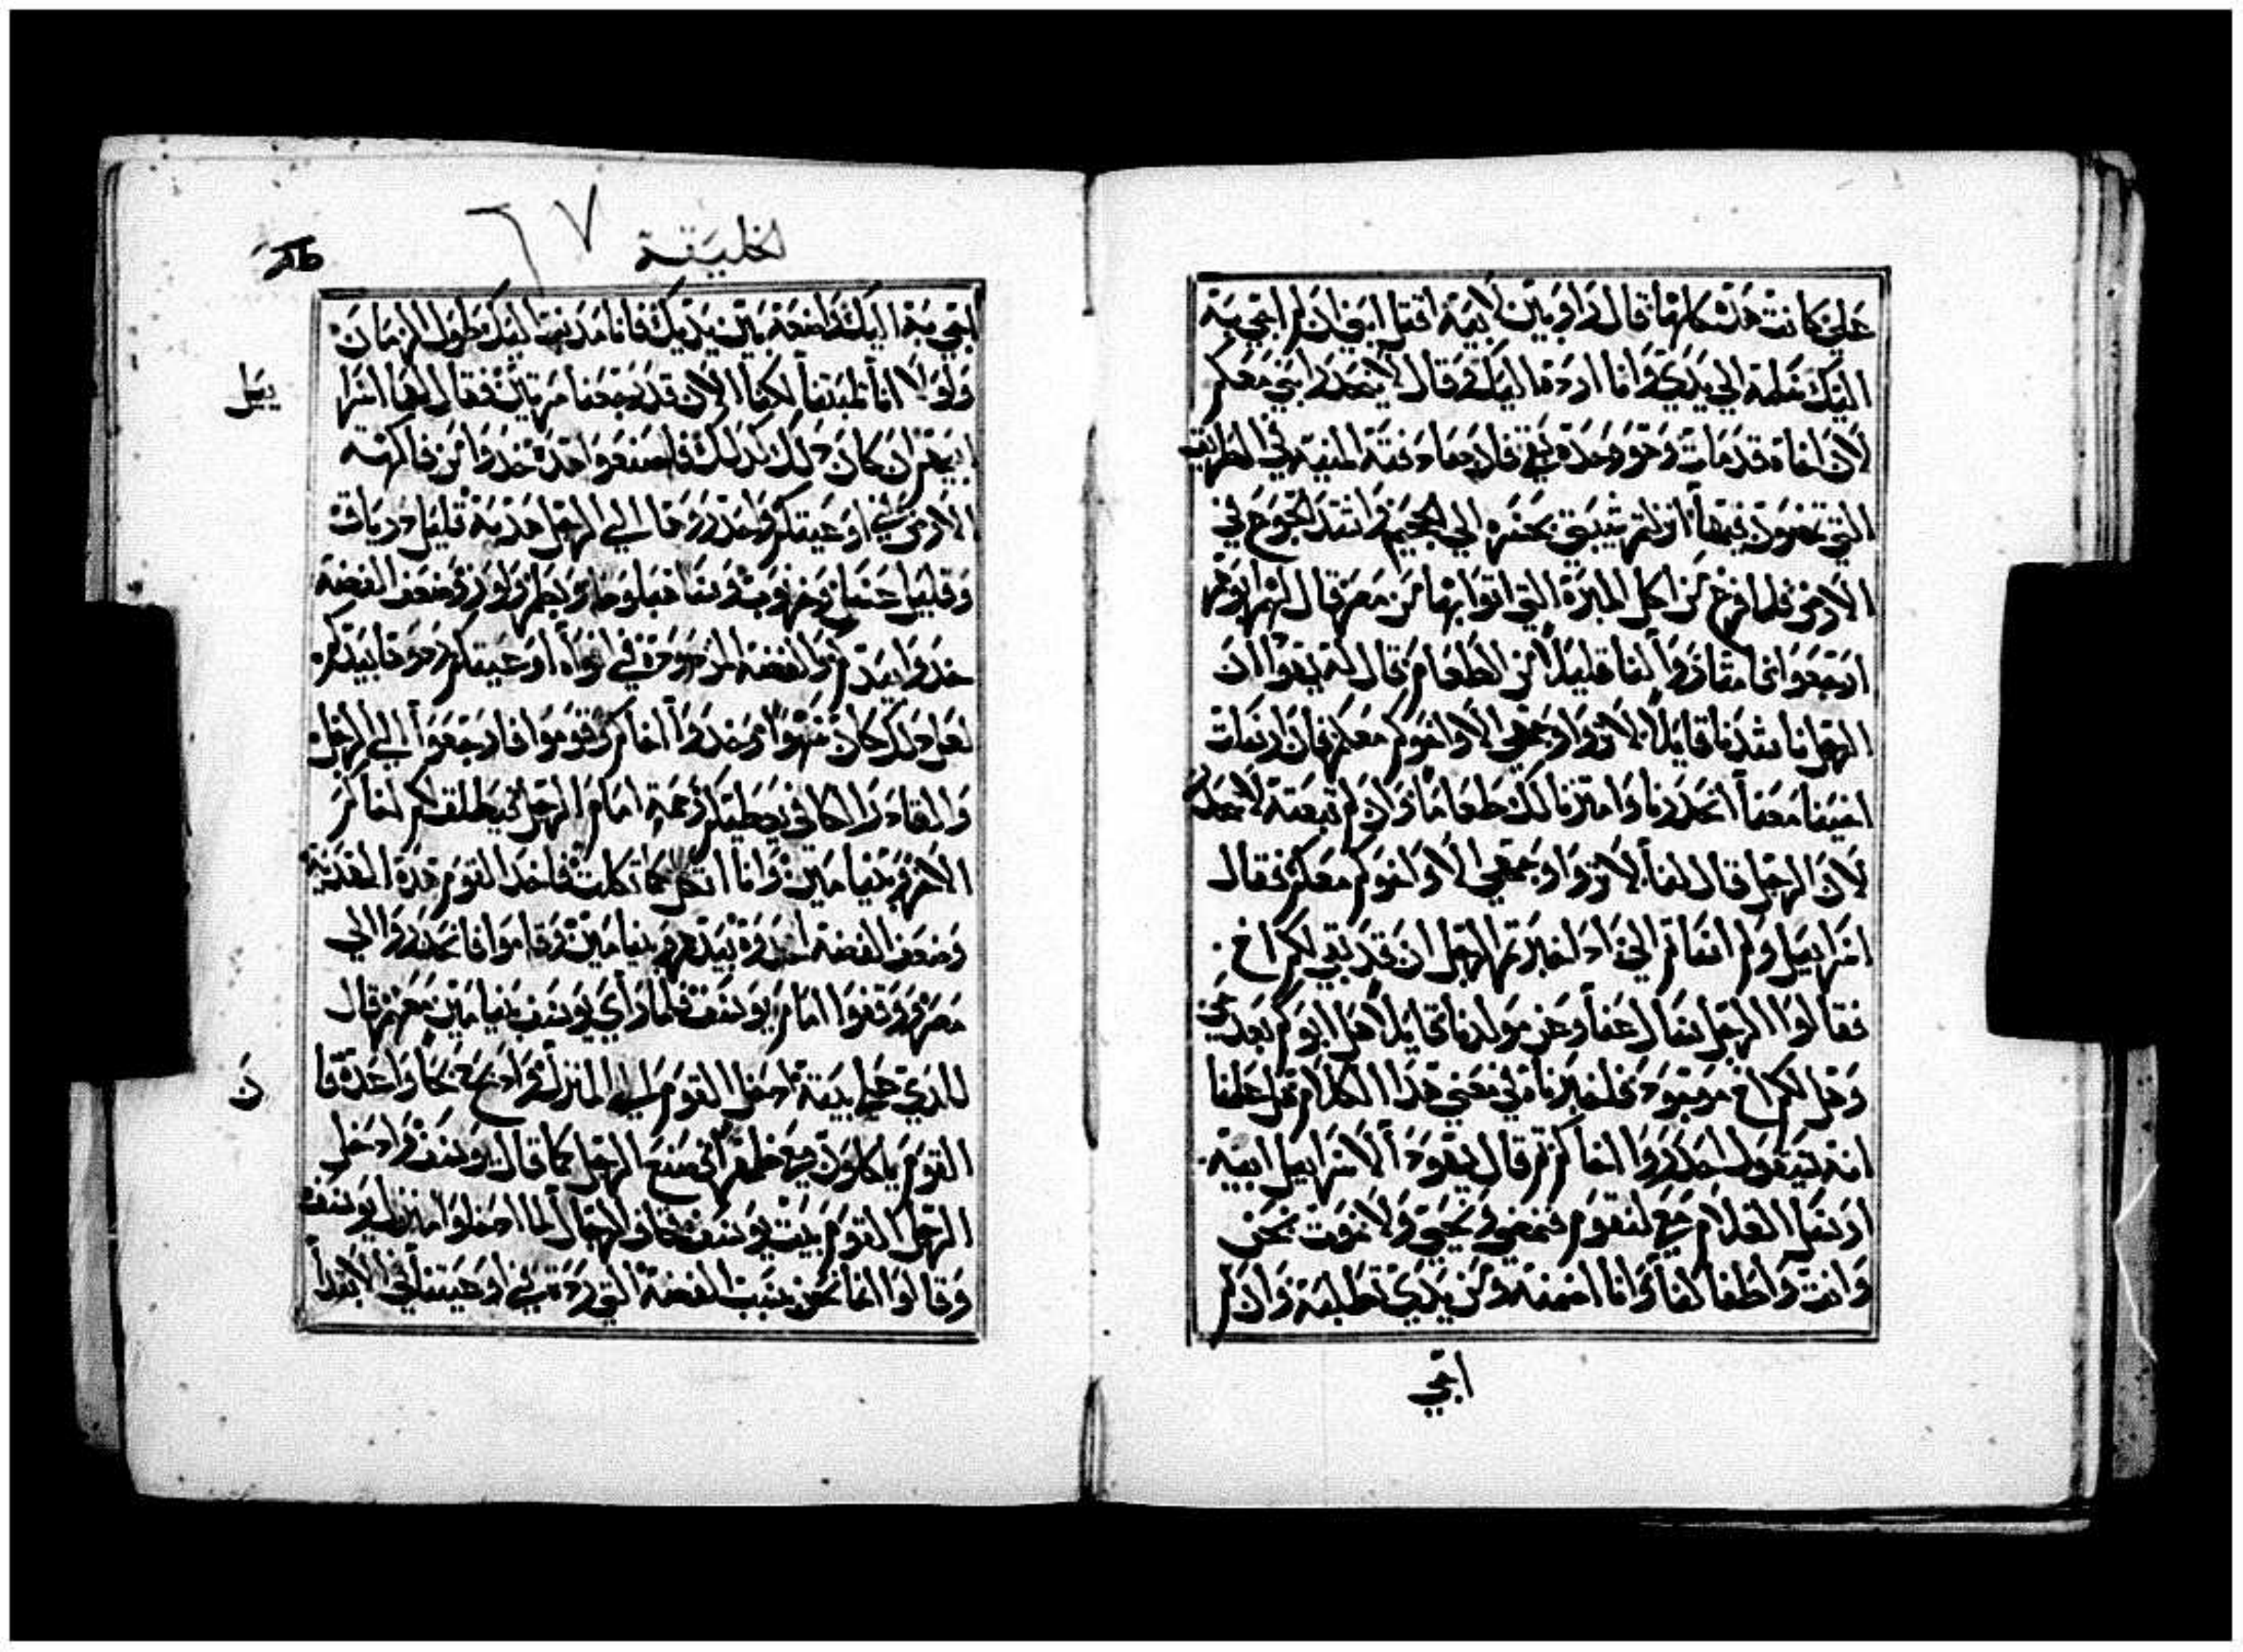 علي كانت هذه كلها قال راوبين لابيه اقتل ابني ان لم اجي به
اليك سلمه الي يدي وانا ارده اليك وقال لا ينحدر ابني معكم
لان اخاه قد مات وهو وحده بقي فلا دهماه منية المنية في الطريق
التي تمضون فيها انزلتم شيبتي بحسره الي الجحيم واشتد الجوع في
الارض فلما فرغ من اكل الميرة التي اتوا بها من مصر قال لهم ابوهم
ارجعوا امتاروا لنا قليلا من الطعام قال له يهودا ان
الرجل ناشدنا قايلا لا تروا وجهي الا واخوكم معكم فان ارسلت
اخينا معنا انحدرنا وامترنا لك طعاما وان لم تبعته لا ننحدر
لان الرجل قال لنا لا تروا وجهي الا واخوكم معكم فقال
اسراييل ولم اسأتم الي اذ اخبرتم الرجل ان قد بقي لكم اخ
فقالوا الرجل سال عنا وعن مولدنا قايلا هل ابوكم بعد حي
وهل لكم اخ موجود نحن اخبرناه في معني هذا الكلام هل علمنا
انه سيقول احدروا اخاكم ثم قال يهودا لاسراييل ابيه
ارسل الغلام مع لنقوم نمضي ونحيي ولا نموت نحن
وانت واطفالنا وانا اضمنه ومن يدي تطلبه وان لم
اجي
الخليقة
٦٧
اجي به اليك واضعه بين يديك فانا مذنب اليك طول الزمان
ولولا انا لبثنا لكنا الان قد رجعنا مرتين فقال لهما اسرا
ييل
ابيهم ان كان ذلك كذلك فاصنعوا هذه خذوا من فاكهة
الارض في اوعيتكم واحدروها الي الرجل هدية قليل درياق
وقليل عسل
خذوا بيدكم والفضه المردودة في افواه اوعيتكم ردوها بيدكم
لعل ذلك كان سهوا وخذوا اخاكم وقوموا فارجعوا الي الرجل
والقادر الكافي يعطيكم رحمة امام الرجل فيطلق لكم اخاكم
الاخر وبنيامين وانا اثكل كما ثكلت فاخذ القوم هذه الهدية
وضعف الفضه اخذوه بيدهم وبنيامين وقاموا فانحدروا الي
مصر ووقفوا امام يوسف فلما رأي يوسف بنيامين معهم قال
للذي علي بيته ادخل القوم الي المنزل واذبح ذبحا واعده فا
ن
القوم ياكلون معي ظهرا فصنع الرجل كما قال يوسف وادخل
الرجل القوم بيت يوسف فخاف الرجال لما ادخلوا منزل يوسف
وقالوا انما نحن بسبب الفضه التي ردت في اوعيتنا في الابتدا